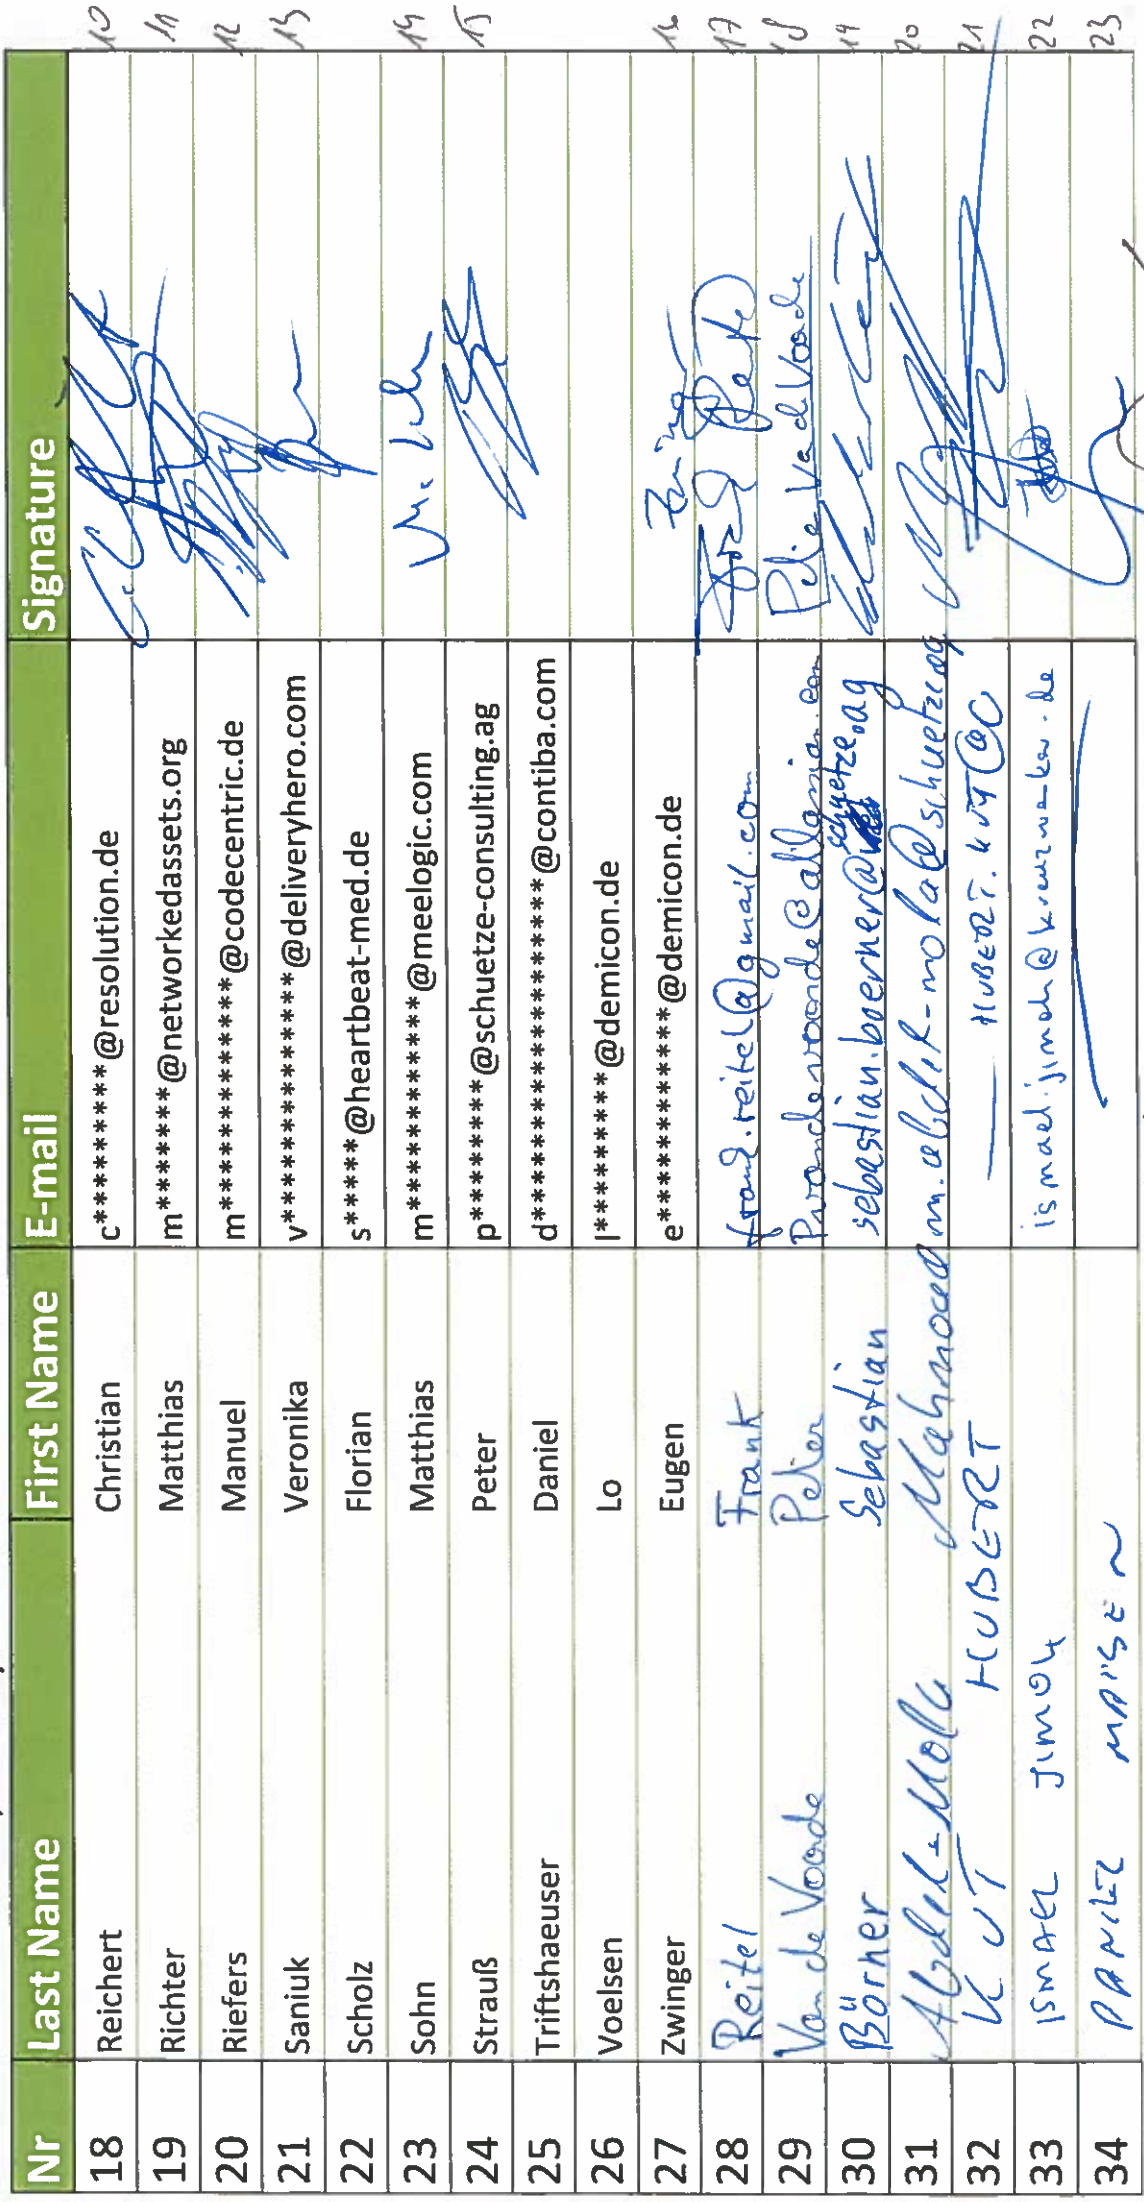 Nr Last Name First Name E-mail Signature
18 Reichert Christian c*********@resolution.de 10
19 Richter Matthias m*******@networkedassets.org 11
20 Riefers Manuel m*************@codecentric.de 12
21 Saniuk Veronika v*************@deliveryhero.com 13
22 Scholz Florian s*****@heartbeat-med.de
23 Sohn Matthias m************@meelogic.com 14
24 Strauß Peter p*********@schuetze-consulting.ag 15
25 Triftshaeuser Daniel d******************@contiba.com
26 Voelsen Lo l*********@demicon.de
27 Zwinger Eugen e***********@demicon.de 16
28 Reitel Frank frank.reitel@gmail.com 17
29 Van de Voorde Peter Pvandevoorde@ 18
30 Börner Sebastian sebastian.boerner@schuetze.ag 19
31 Abdel-Molla Mahmoud m.abdel-mola@schuetze.ag 20
32 KUT HUBERT HUBERT.KUT@ 21
33 ISMAEL JIMOH ismael.jimoh@kreuzwerker.de 22
34 DANIEL 23